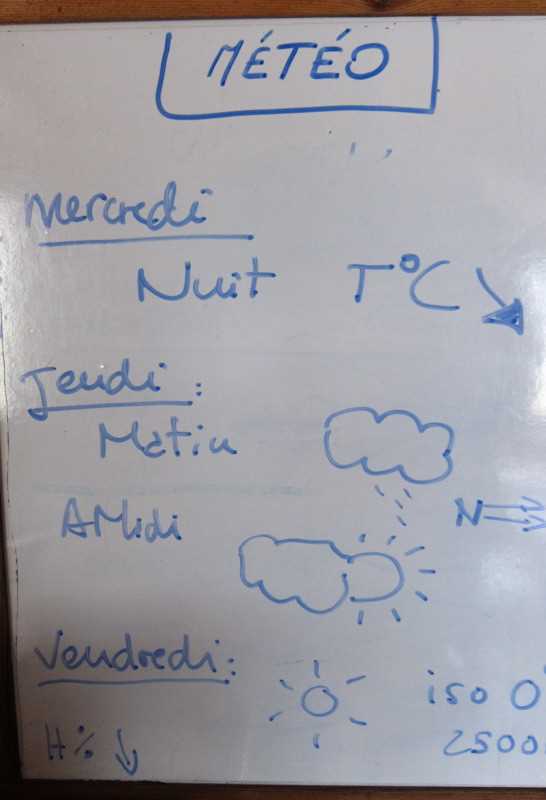 MÉTÉO
Mercredi
Nuit T°C ↘
Jeudi :
Matin
AMidi N ⇒
Vendredi : iso 0°
H% ↓ 2500